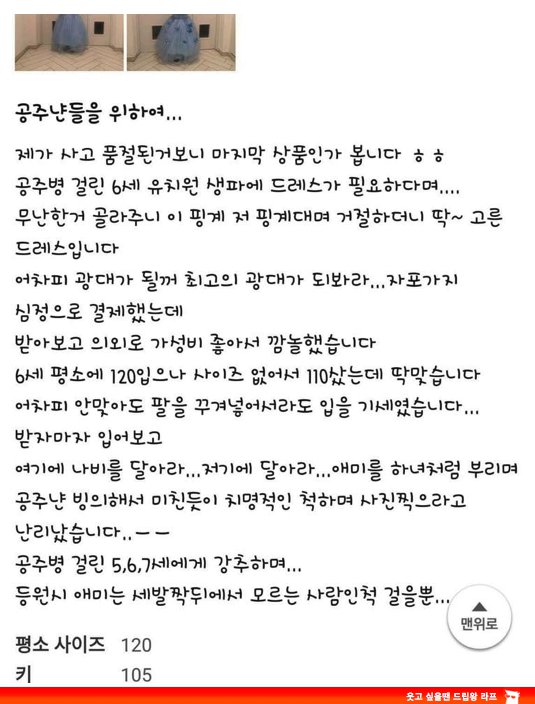 공주냔들을 위하여...
제가 사고 품절된거보니 마지막 상품인가 봅니다 ㅎㅎ
공주병 걸린 6세 유치원 생파에 드레스가 필요하다며....
무난한거 골라주니 이 핑계 저 핑계대며 거절하더니 딱~ 고른
드레스입니다
어차피 광대가 될꺼 최고의 광대가 되봐라...자포가지
심정으로 결제했는데
받아보고 의외로 가성비 좋아서 깜놀했습니다
6세 평소에 120입으나 사이즈 없어서 110샀는데 딱맞습니다
어차피 안맞아도 팔을 꾸겨넣어서라도 입을 기세였습니다...
받자마자 입어보고
여기에 나비를 달아라...저기에 달아라...애미를 하녀처럼 부리며
공주냔 빙의해서 미친듯이 치명적인 척하며 사진찍으라고
난리났습니다..ㅡㅡ
공주병 걸린 5,6,7세에게 강추하며...
등원시 애미는 세발짝뒤에서 모르는 사람인척 걸을뿐...
맨위로
평소 사이즈 120
키 105
웃고 싶을땐 드립왕 라프